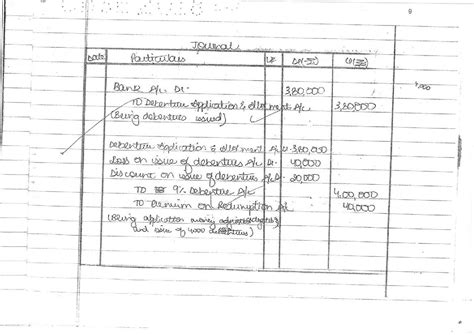 9
Journal
Date Particulars L.F. Dr. (₹) Cr. (₹)
Bank A/c Dr. 3,80,000
To Debenture Application & allotment A/c 3,80,000
(Being debentures issued)
Debenture Application & allotment A/c Dr. 3,80,000
Loss on issue of debentures A/c Dr. 40,000
Discount on issue of debentures A/c Dr. 20,000
To 9% Debenture A/c 4,00,000
To Premium on Redemption A/c 40,000
(Being application money
and issue of 4000 debentures)